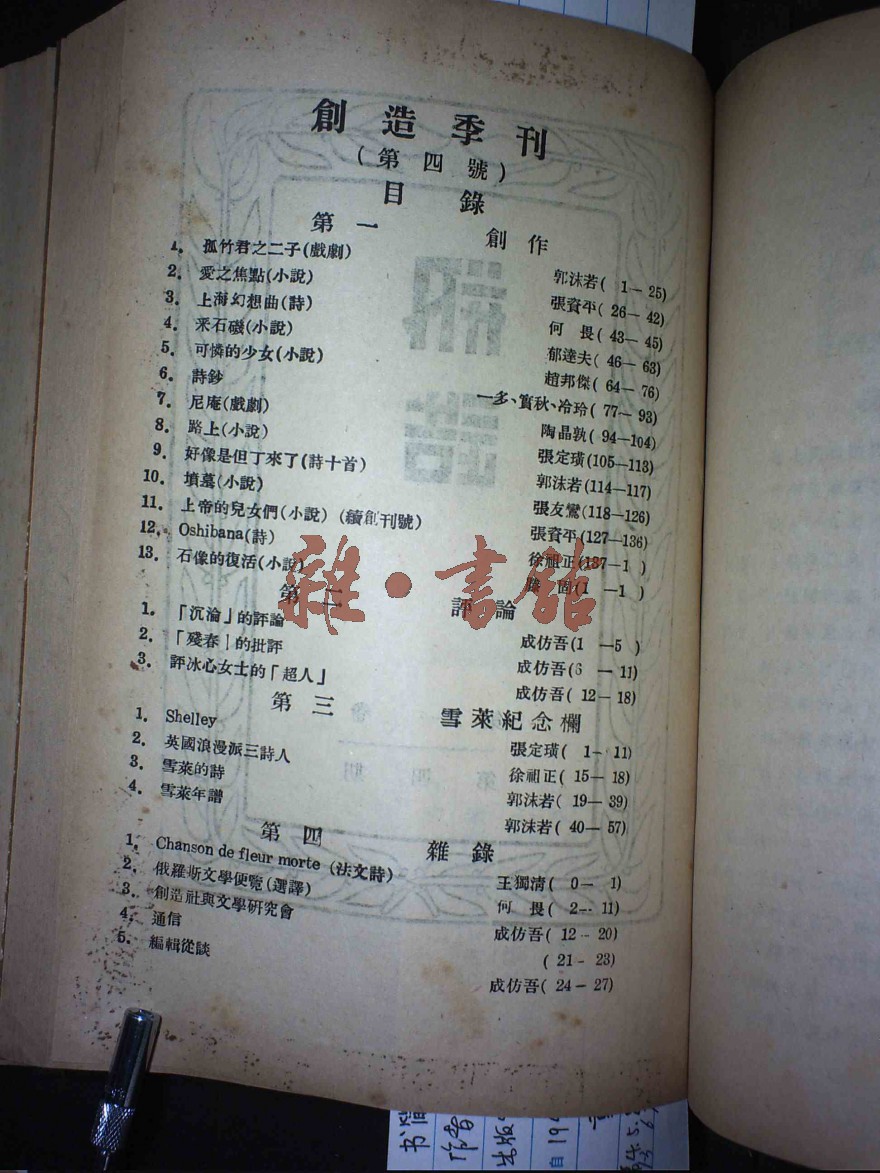 創造季刊
(第四號)
目錄
第一 創作
1. 孤竹君之二子(戲劇) 郭沫若( 1—25)
2. 愛之焦點(小說) 張資平( 26—42)
3. 上海幻想曲(詩) 何畏( 43—45)
4. 釆石磯(小說) 郁達夫( 46—63)
5. 可憐的少女(小說) 趙邦傑( 64—76)
6. 詩鈔 一多、實秋、冷玲( 77—93)
7. 尼庵(戲劇) 陶晶孫( 94—104)
8. 路上(小說) 張定璜(105—113)
9. 好像是但丁來了(詩十首) 郭沫若(114—117)
10. 墳墓(小說) 張友鸞(118—126)
11. 上帝的兒女們(小說)(續創刊號) 張資平(127—136)
12. Oshibana(詩) 徐祖正(137—1 )
13. 石像的復活(小說) 固(1 —1 )
第二 評論
1. 「沉淪」的評論 成仿吾(1 —5 )
2. 「殘春」的批評 成仿吾(6 —11)
3. 評冰心女士的「超人」 成仿吾( 12—18)
第三 雪萊紀念欄
1. Shelley 張定璜( 1—11)
2. 英國浪漫派三詩人 徐祖正( 15—18)
3. 雪萊的詩 郭沫若( 19—39)
4. 雪萊年譜 郭沫若( 40—57)
第四 雜錄
1. Chanson de fleur morte (法文詩) 王獨清( 0— 1)
2. 俄羅斯文學便覽(選譯) 何畏( 2—11)
3. 創造社與文學研究會 成仿吾( 12—20)
4. 通信 ( 21-23)
5. 編輯從談 成仿吾( 24—27)
雜·書館
作者
出版